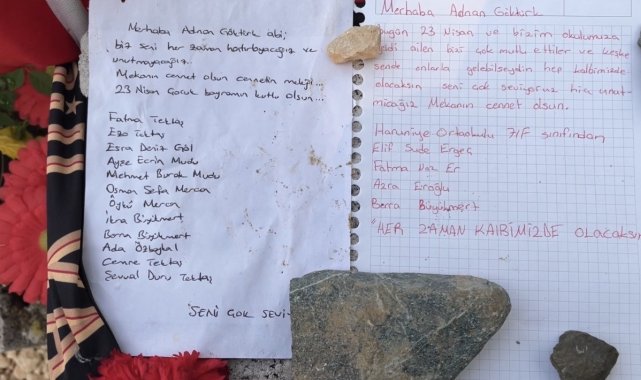 Merhaba Adnan Göktürk abi;
biz seni her zaman hatırlayacağız ve
unutmayacağız.
Mekanın cennet olsun cennetin meleği...
23 Nisan Çocuk bayramın kutlu olsun...
Fatma Tektaş
Ezo Tektaş
Esra Deniz Göl
Ayşe Ecrin Mudu
Mehmet Burak Mudu
Osman Sefa Mercan
Öykü Mercan
Berra Büyükmert
Ada Özbaykal
Cemre Tektaş
Şevval Duru Tektaş
SENİ ÇOK SEVİ
Merhaba Adnan Göktürk
bugün 23 Nisan ve bizim okulumuza
ailen bizi çok mutlu ettiler ve keşke
sende onlarla gelebilseydin hep kalbimizde
olacaksın seni çok seviyoruz hiç unut-
mıcağız Mekanın cennet olsun.
Haruniye Ortaokulu 7/F sınıfından
Elif Sude Ergeç
Fatma Naz Er
Azra Eroğlu
Berra Büyükmert
"HER ZAMAN KALBİMİZDE OLACAKSIN